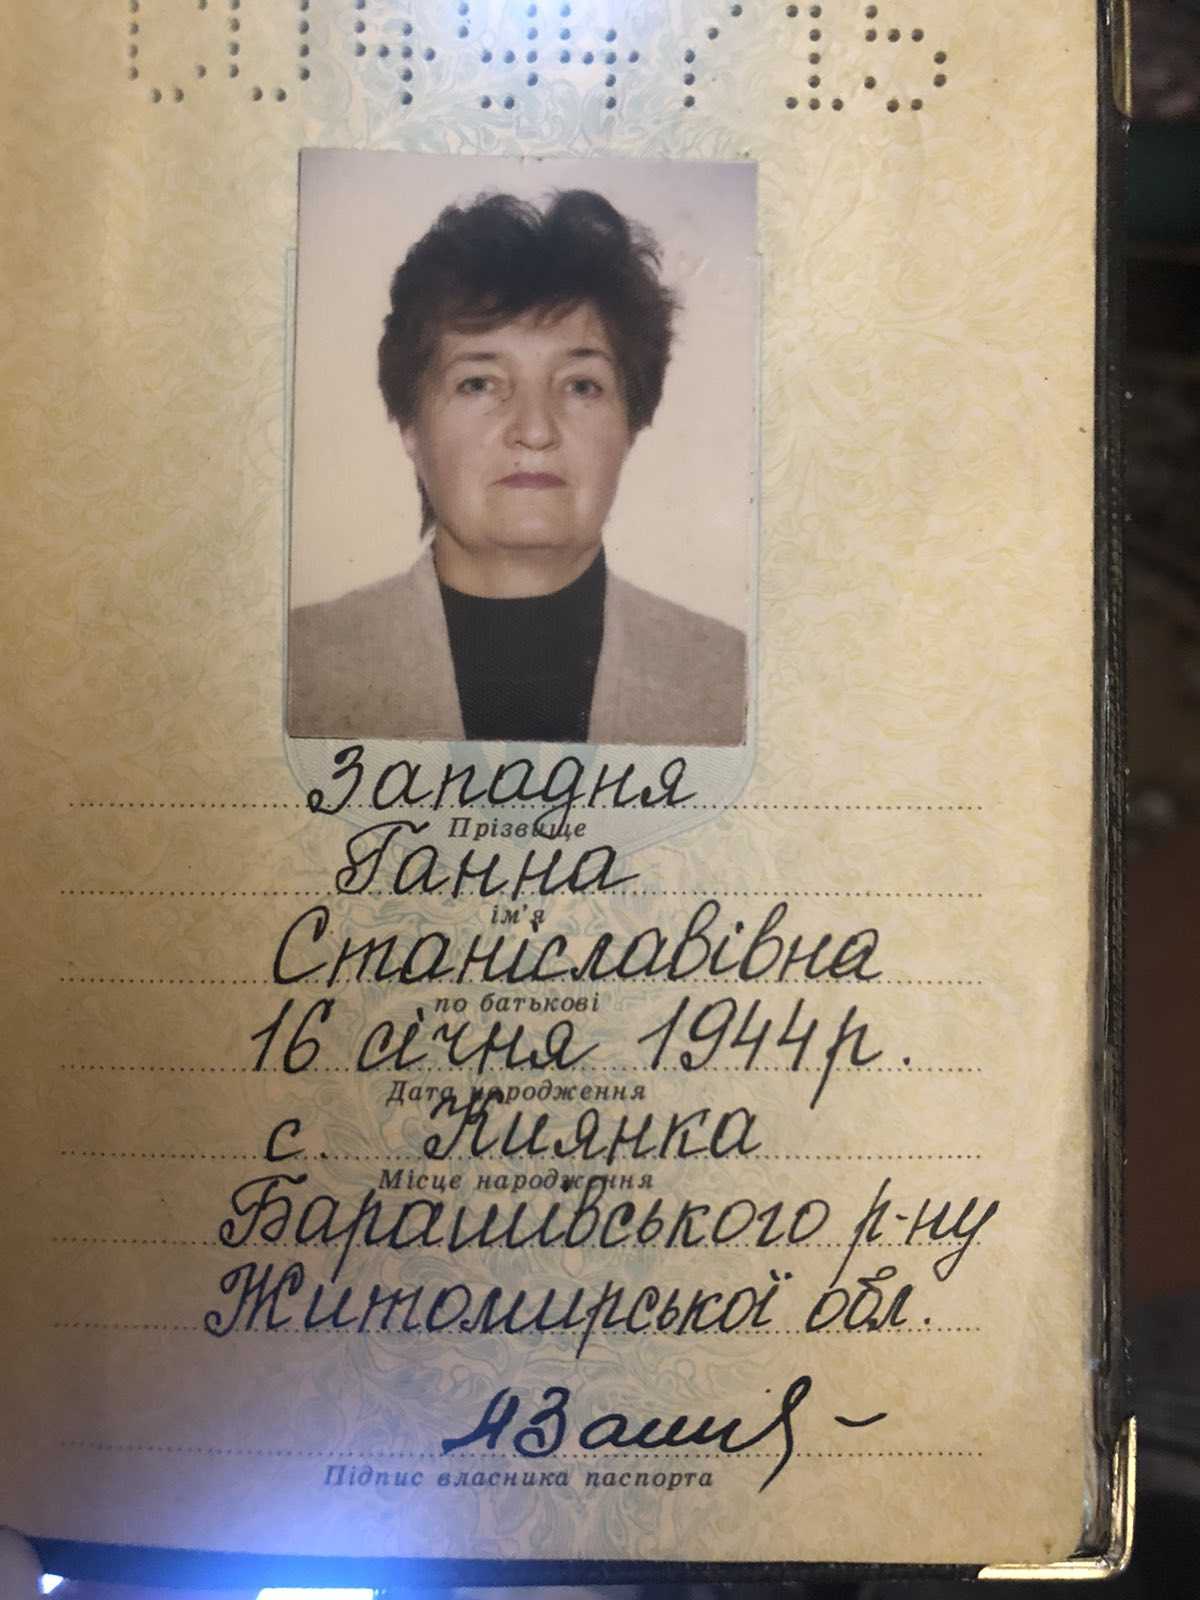 Западня
Прізвище
Ганна
ім'я
Станіславівна
по батькові
16 січня 1944 р.
Дата народження
с. Киянка
Місце народження
Барашівського р-ну
Житомирської обл.
Підпис власника паспорта